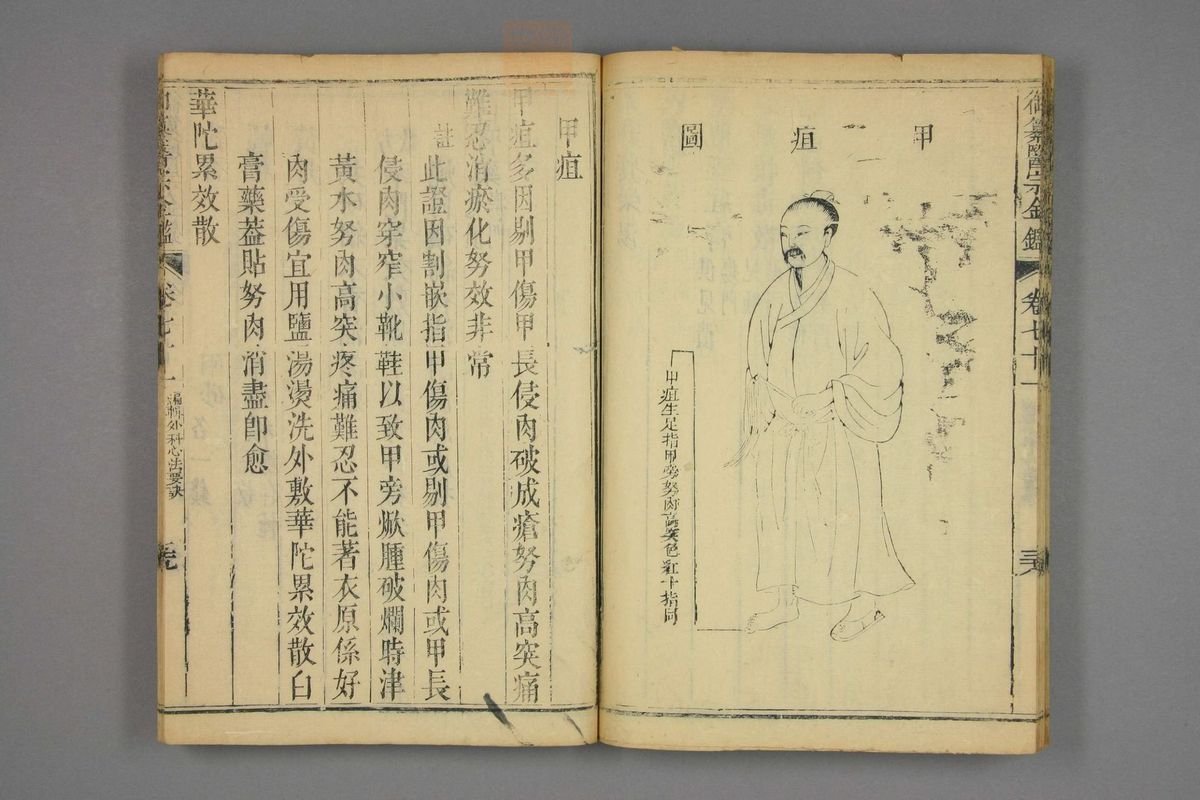 御纂醫宗金鑑 卷七十一 三六
甲疽圖
甲疽生足指甲旁努肉高突色紅十指同
甲疽
甲疽多因剔甲傷甲長侵肉破成瘡努肉高突痛
難忍消瘀化努效非常
註此證因割嵌指甲傷肉或剔甲傷肉或甲長
侵肉穿窄小靴鞋以致甲旁焮腫破爛時津
黃水努肉高突疼痛難忍不能著衣原係好
肉受傷宜用鹽湯燙洗外敷華陀累效散白
膏藥葢貼努肉消盡卽愈
華陀累效散
編輯外科心法要訣